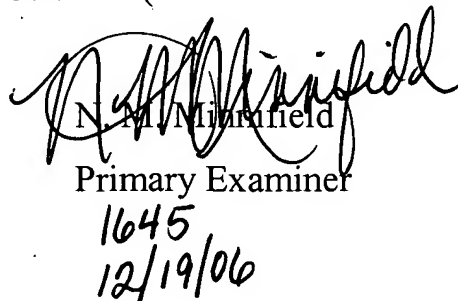 N. M. Minnifield
N. M. Minnifield
Primary Examiner
1645
12/19/06